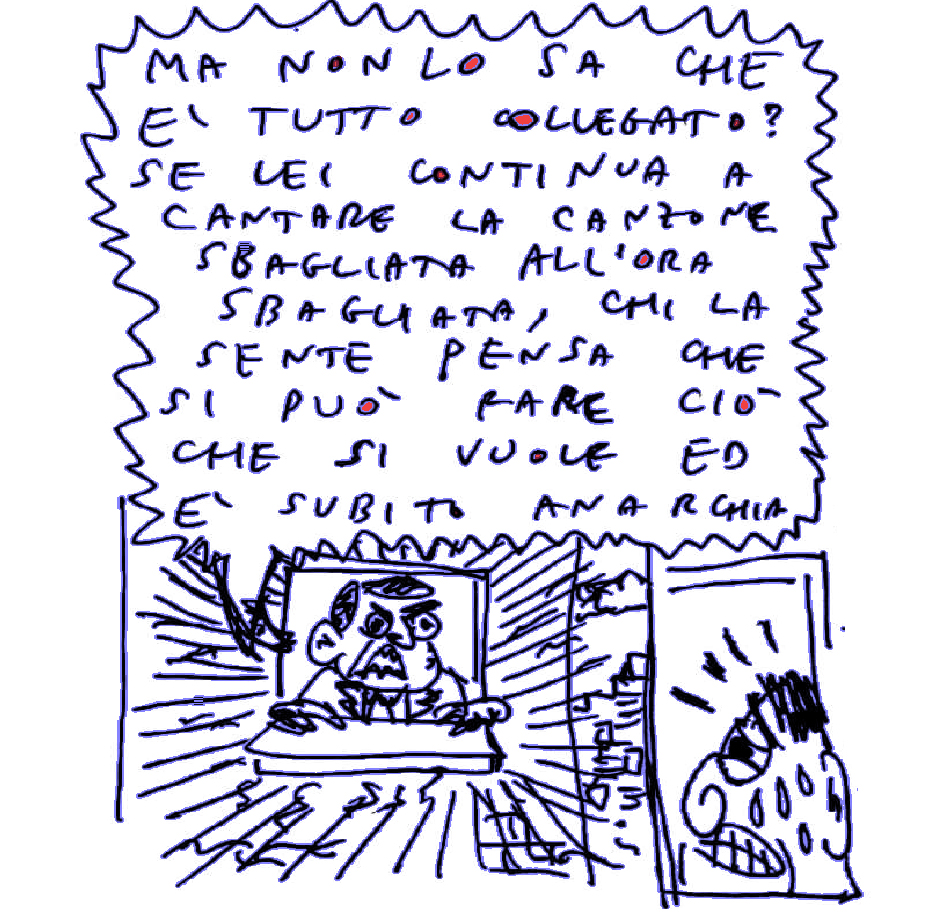 MA NON LO SA CHE
E' TUTTO COLLEGATO?
SE LEI CONTINUA A
CANTARE LA CANZONE
SBAGLIATA ALL'ORA
SBAGLIATA, CHI LA
SENTE PENSA CHE
SI PUO' FARE CIO'
CHE SI VUOLE ED
E' SUBITO ANARCHIA